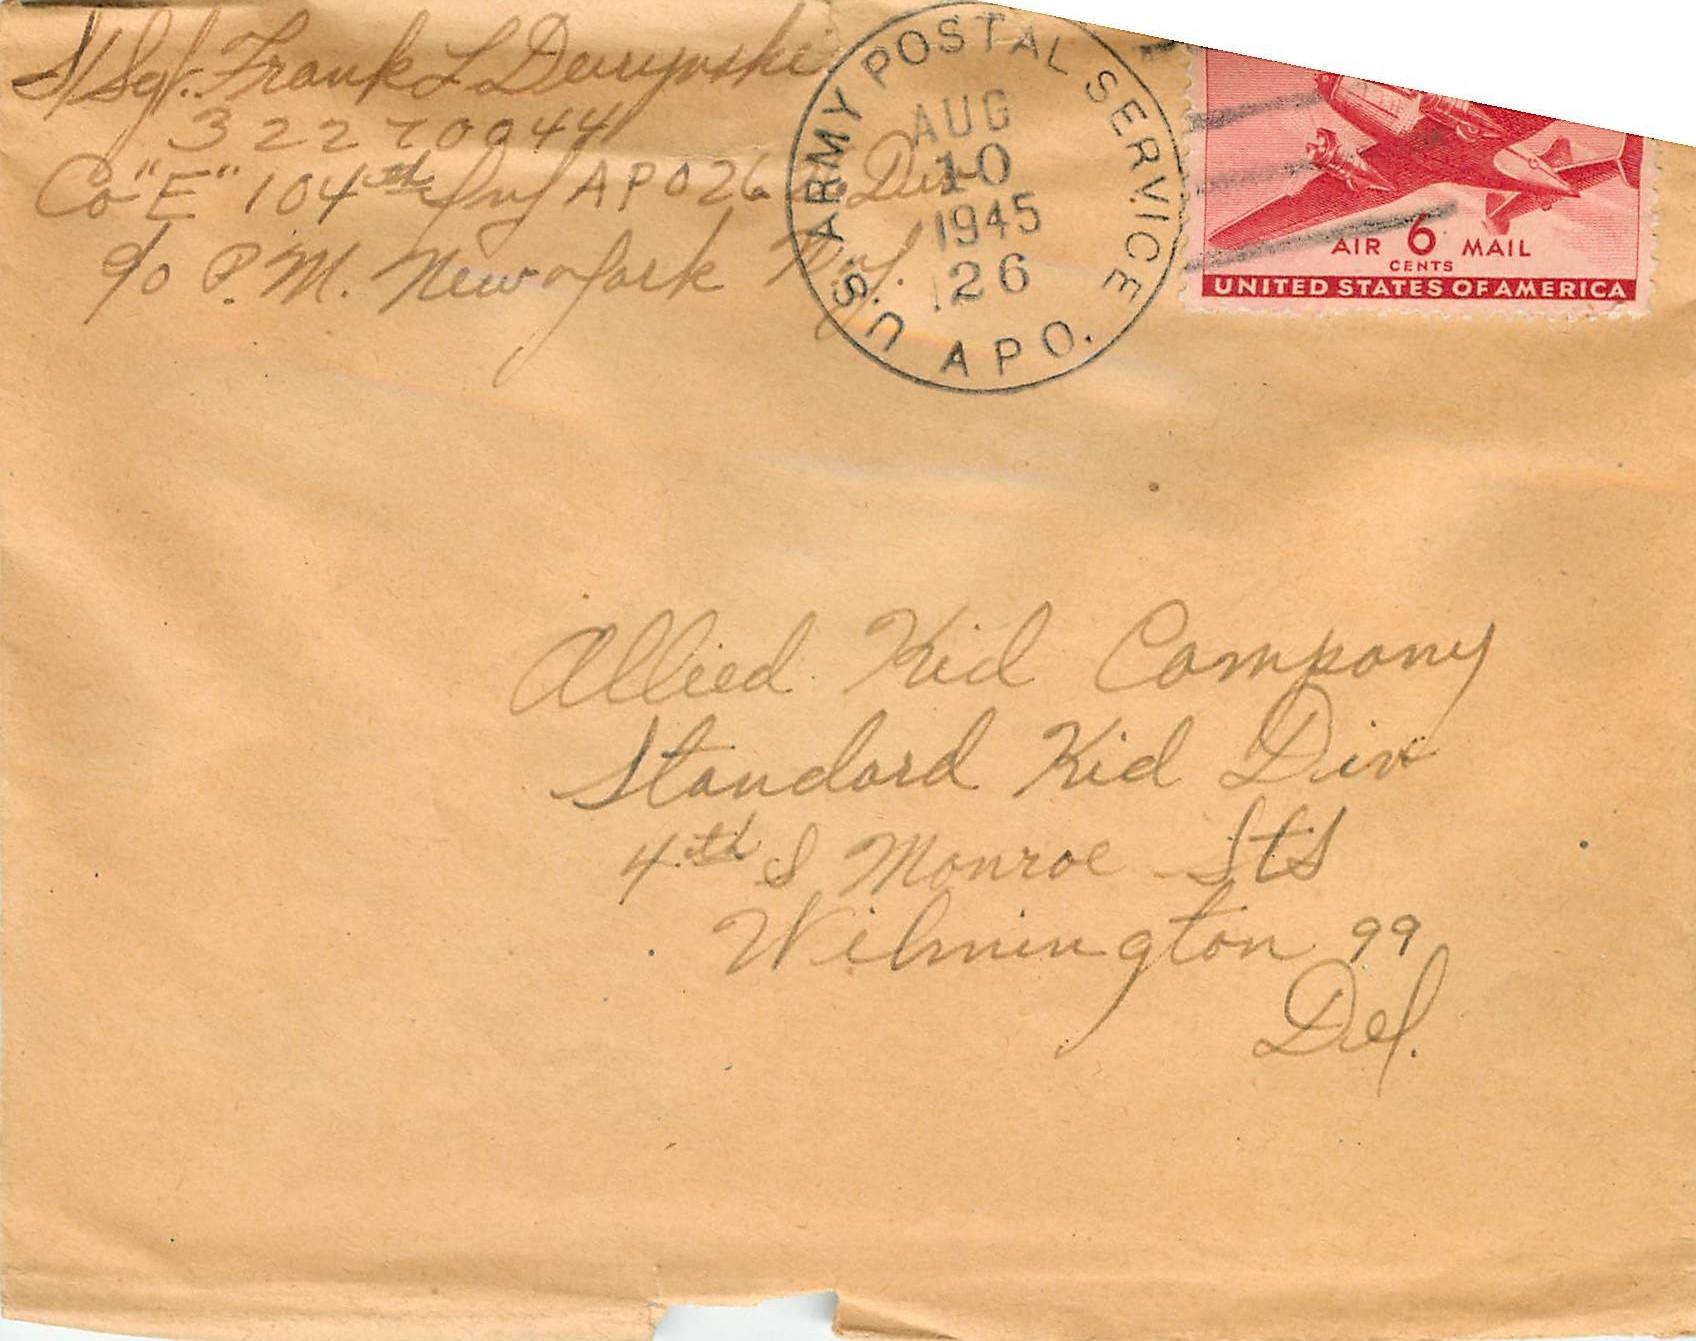 S/Sgt. Frank L
32270044
Co "E" 104th Inf APO 26 Div
c/o P.M. New York N.Y.
U.S. ARMY POSTAL SERVICE
AUG
10
1945
26
A P O.
AIR 6 MAIL
CENTS
UNITED STATES OF AMERICA
Allied Kid Company
Standard Kid Div
4th & Monroe Sts
Wilmington 99
Del.